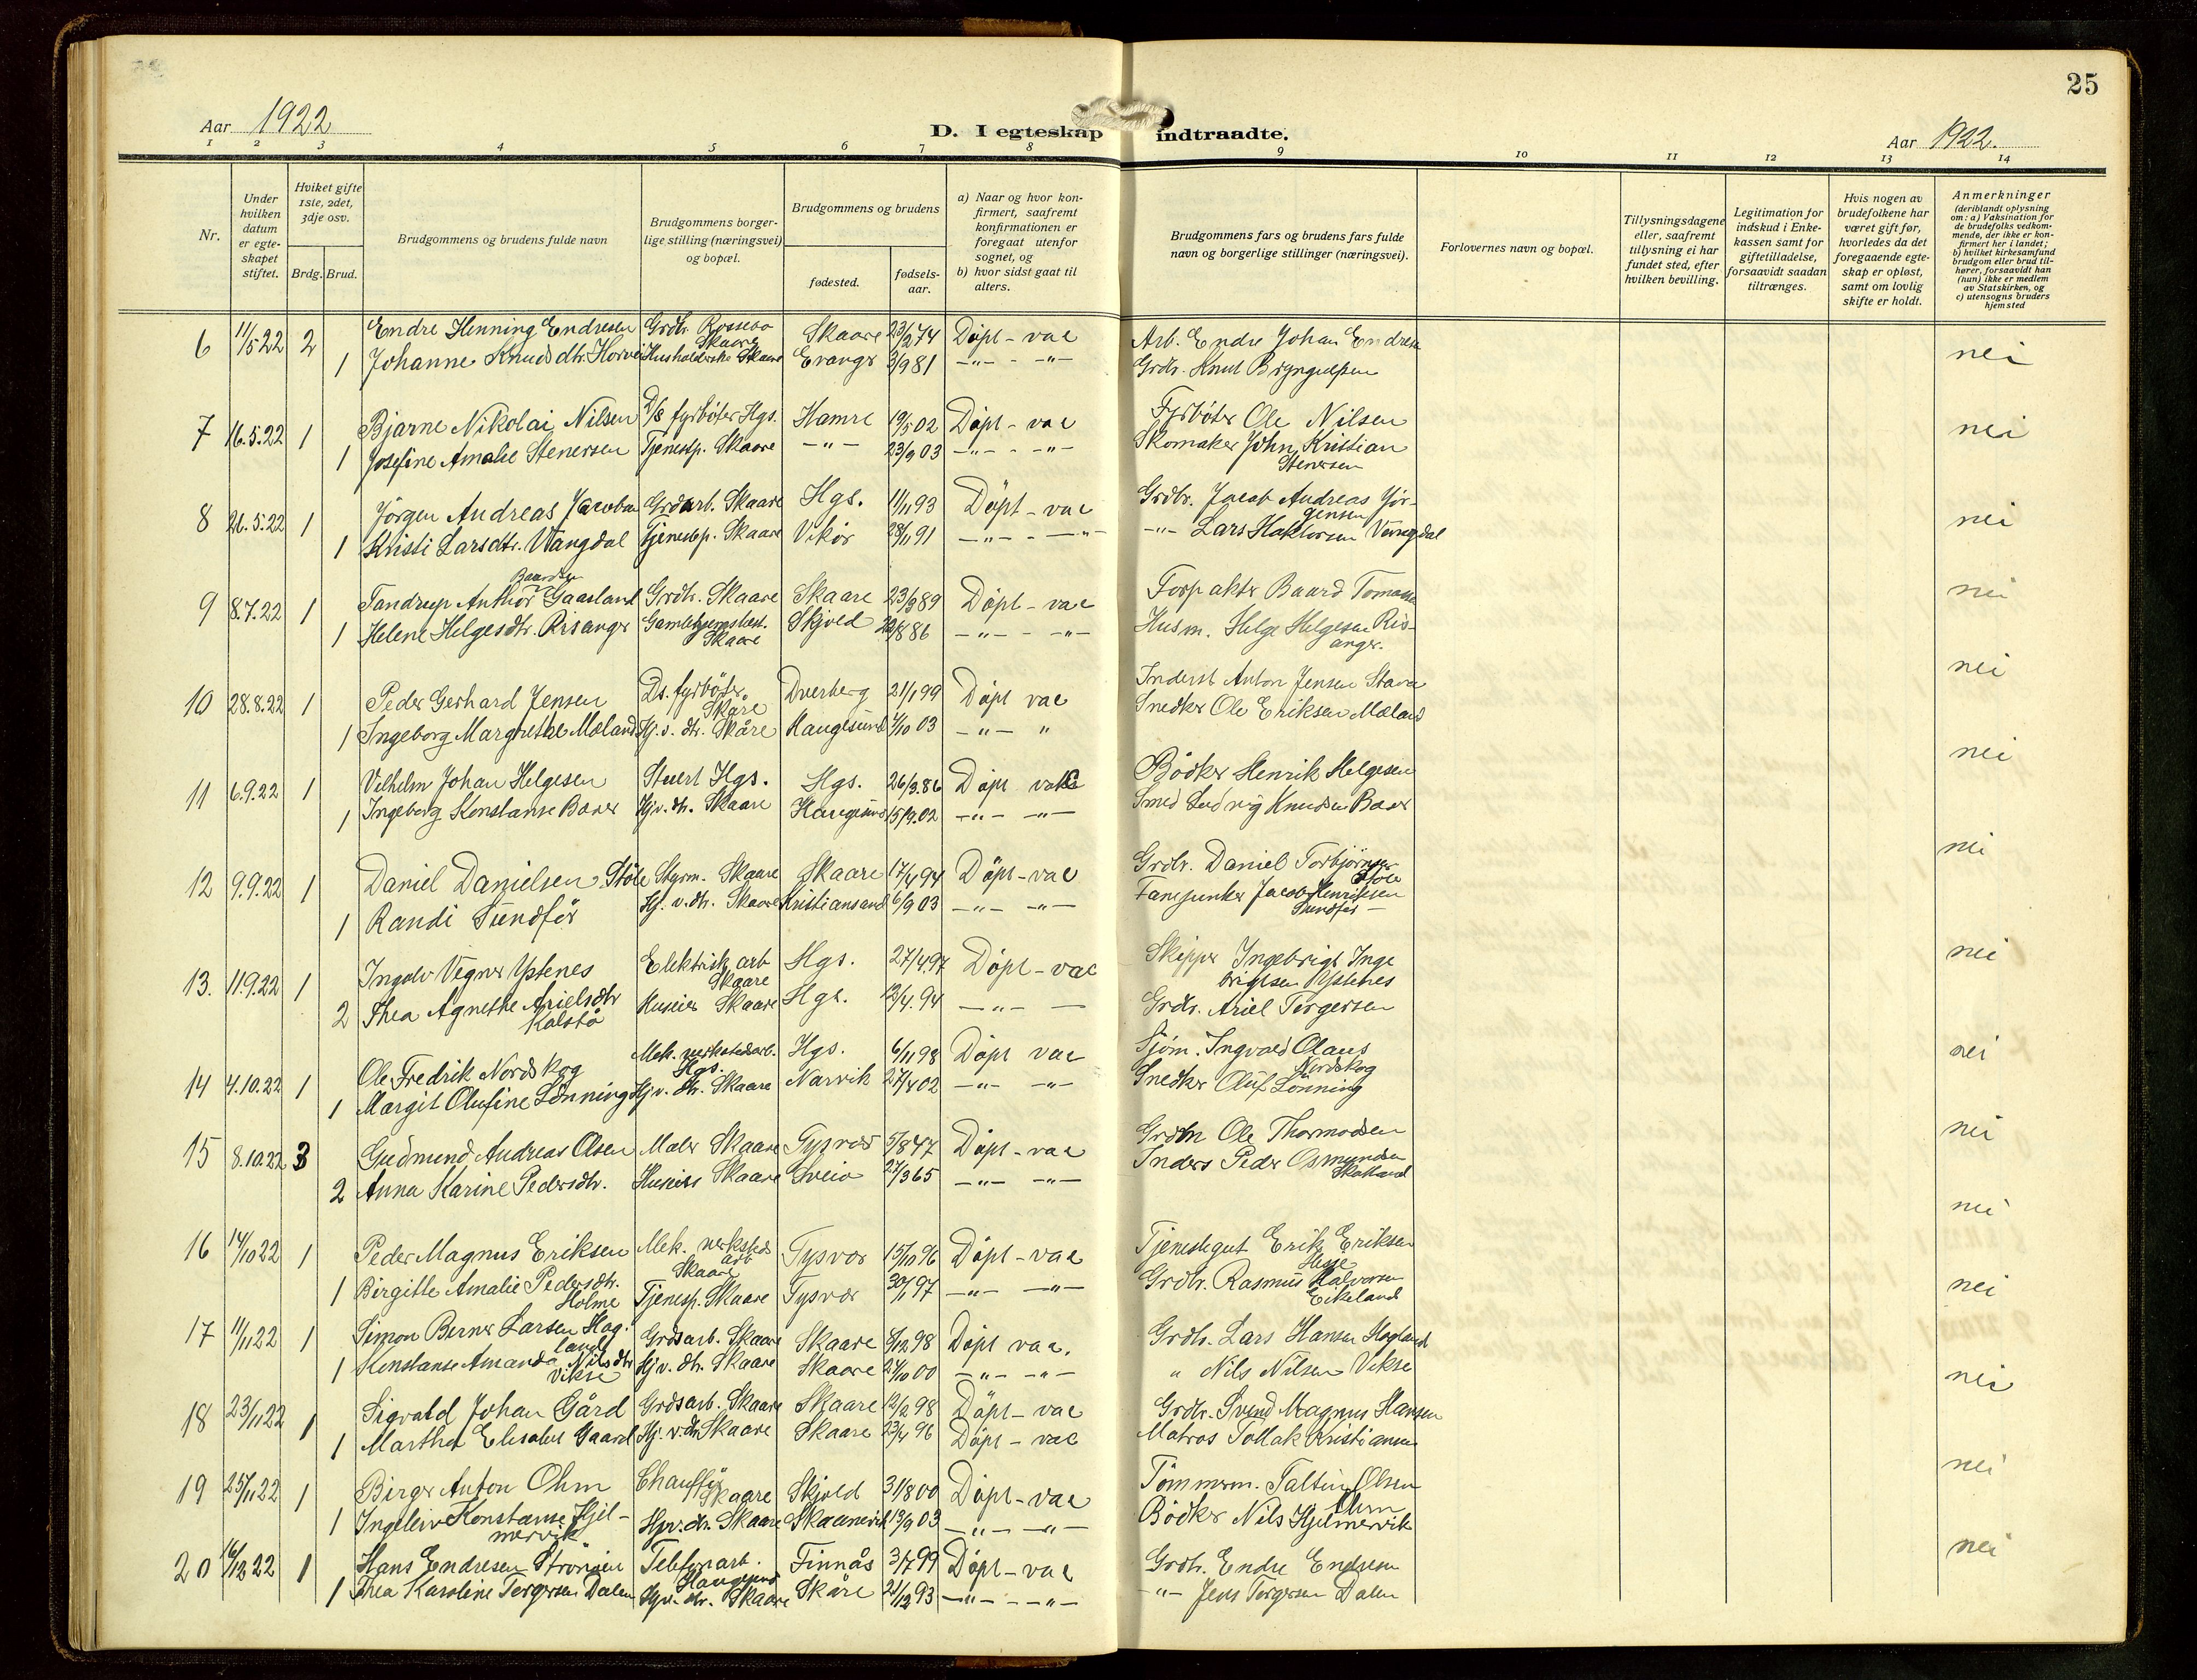 25
Aar 1922
D. I egteskap indtraadte.
Aar 1922.
1 2 3 4 5 6 7 8 9 10 11 12 13 14
Nr.
Under hvilken datum er egte- skapet stiftet.
Hviket gifte 1ste, 2det, 3dje osv.
Brdg. Brud.
Brudgommens og brudens fulde navn
Brudgommens borger- lige stilling (næringsvei) og bopæl.
Brudgommens og brudens
fødested.
fødsels- aar.
a) Naar og hvor kon- firmert, saafremt konfirmationen er foregaat utenfor sognet, og
b) hvor sidst gaat til alters.
Brudgommens fars og brudens fars fulde navn og borgerlige stillinger (næringsvei).
Forlovernes navn og bopæl.
Tillysningsdagene eller, saafremt tillysning ei har fundet sted, efter hvilken bevilling.
Legitimation for indskud i Enke- kassen samt for giftetilladelse, forsaavidt saadan tiltrænges.
Hvis nogen av brudefolkene har været gift før, hvorledes da det foregaaende egte- skap er opløst, samt om lovlig skifte er holdt.
Anmerkninger (deriblandt oplysning om: a) Vaksination for de brudefolks vedkom- mende, der ikke er kon- firmert her i landet; b) hvilket kirkesamfund brudgom eller brud til- hører, forsaavidt han (hun) ikke er medlem av Statskirken, og c) utensogns bruders hjemsted
6 11/5 22 2 Endre Henning Endresen Grdbr. Rossebø Skaare Skaare 23/2 74 Döpt - vac Arb. Endre Johan Endresen nei
1 Johanne Knudsdtr. Horvei Husholderske Skaare Evanger 3/9 81 -"- -"- Grdr. Knut Bryngelsen
7 16.5.22 1 Bjarne Nikolai Nilsen D/s fyrböter Hgs. Hamre 19/5 02 Döpt - vac Fyrböter Ole Nilsen nei
1 Josefine Amalie Stenersen Tjenesp. Skaare -"- 23/9 03 -"- -"- Skomaker John Kristian Stenersen
8 26.5.22 1 Jörgen Andreas Jacobsen Grdarb. Skaare Hgs. 11/11 93 Döpt - vac Grdbr. Jacob Andreas Jör- gensen nei
1 Kristi Larsdtr. Vangdal Tjenestep. Skaare Vikör 28/11 91 -"- -"- -"- Lars Haktorsen Vangdal
9 8.7.22 1 Tandrup Anthor Baardsen Gaasland Grdbr. Skaare Skaare 23/3 89 Döpt - vac Forpakter Baard Tomassen nei
1 Helene Helgesdtr. Risanger Skaare Skjold 8 86 -"- -"- Husm. Helge Helgesen Ris- anger.
10 28.8.22 1 Peder Gerhard Jensen Ds. fyrböter. Skåre Dverberg 21/1 99 Döpt vac Inderst Anton Jensen Stava nei
1 Ingeborg Margrethe Mæland Hj. v. dtr. Skåre Haugesund 4/10 03 -"- " Snedker Ole Eriksen Mæland
11 6.9.22 1 Vilhelm Johan Helgesen Stuert Hgs. Hgs. 26/3.86 Döpt vac Bödker Henrik Helgesen nei
1 Ingeborg Konstanse Baner Hjv. dtr. Skaare Haugesund 15/9.02 -"- -"- Smed Ludvig Knudsen
12 9.9.22 1 Daniel Danielsen Stöle Styrm. Skaare Skaare 17/4 94 Döpt - vac Grdbr. Daniel Torbjörnsen Stöle nei
1 Randi Sundför Hj. v. dtr. Skaare Kristiansand 6/9 03 -"- -"- Fanejunker Jacob Henriksen Sundför
13. 11.9.22 1 Ingolv Vegner Ystenes Elektrisk arb Skaare Hgs. 27/4.97 Döpt - vac Skipper Ingebrigt Inge brigtsen Ystenes nei
2 Thea Agnethe Arielsdtr Kalstö Huseier Skaare Hgs. 12/4.94 -"- - Grdbr. Ariel Torgersen
14 4.10.22 1 Ole Fredrik Nordskog Mek. verkstedarb. Hgs. Hgs. 6/11 98 Döpt vac Sjöm. Ingvald Olaus Nordskog nei
1 Margit Olufine Lönning Hj v. dtr. Skaare Narvik 27/4 02 -"- -"- Snedker Oluf Lönning
15 8.10.22 3 Gudmund Andreas Olsen Maler Skaare Tysvær 5/8 47 Döpt - vac Grdbr Ole Thormodsen nei
2 Anna Karine Pedersdtr. Huseier Skaare Sveio 27/3 65 -"- -"- Inders Peder Osmundsen Skolland
16 14/10 22 1 Peder Magnus Eriksen Mek. verksteds arb Skaare Tysvær 15/10 96 Döpt - vac Tjenestegut Erik Eriksen nei
1 Birgitte Amalie Pedersdtr. Holme Tjenesp. Skaare Tysvær 30/1 97 -"- -"- Grdbr. Rasmus Halvorsen Eikeland nei
17 11/11 22 1 Simon Berner Larsen Hag- land Grdsarb. Skaare Skaare 8/12 98 Döpt vac. Grdbr. Lars Hansen Hagland
1 Konstanse Amanda Nilsdtr Vikse Hj v. dtr. Skaare Skaare 24/10 00 -"- -"- " Nils Nilsen Vikse nei
18 23/11 22 1 Sigvald Johan Gård Grdsarb. Skaare Skaare 12/2 98 Döpt - vac Grdbr. Svend Magnus Hansen
1 Martha Elisabet Gaard Hj. v. dtr Skaare Skaare 23/4 96 Döpt - vac Matros Tollak Kristiansen
19 25/11 22 1 Birger Anton Ohm Chauffør Skaare Skjold 31/8 00 Döpt - vac Tömmerm. Taltin Olsen Ohm nei
1 Ingeleiv Konstanse Hjel- mervik Hjv. dr. Skaare Skaanevik 13/9 03 -"- -"- Bödker Nils Hjelmervik
20 16/12 22 1 Hans Endresen Strönöen Telefonarb. Haugesund Finnås 3/7 99 Döpt - vac Grdbr. Endre Endresen nei
1 Thea Karoline Torgersen Dalen Hjv. dtr. Skaare Skåre 21/12 93 -"- -"- -"- Jens Torgersen Dalen